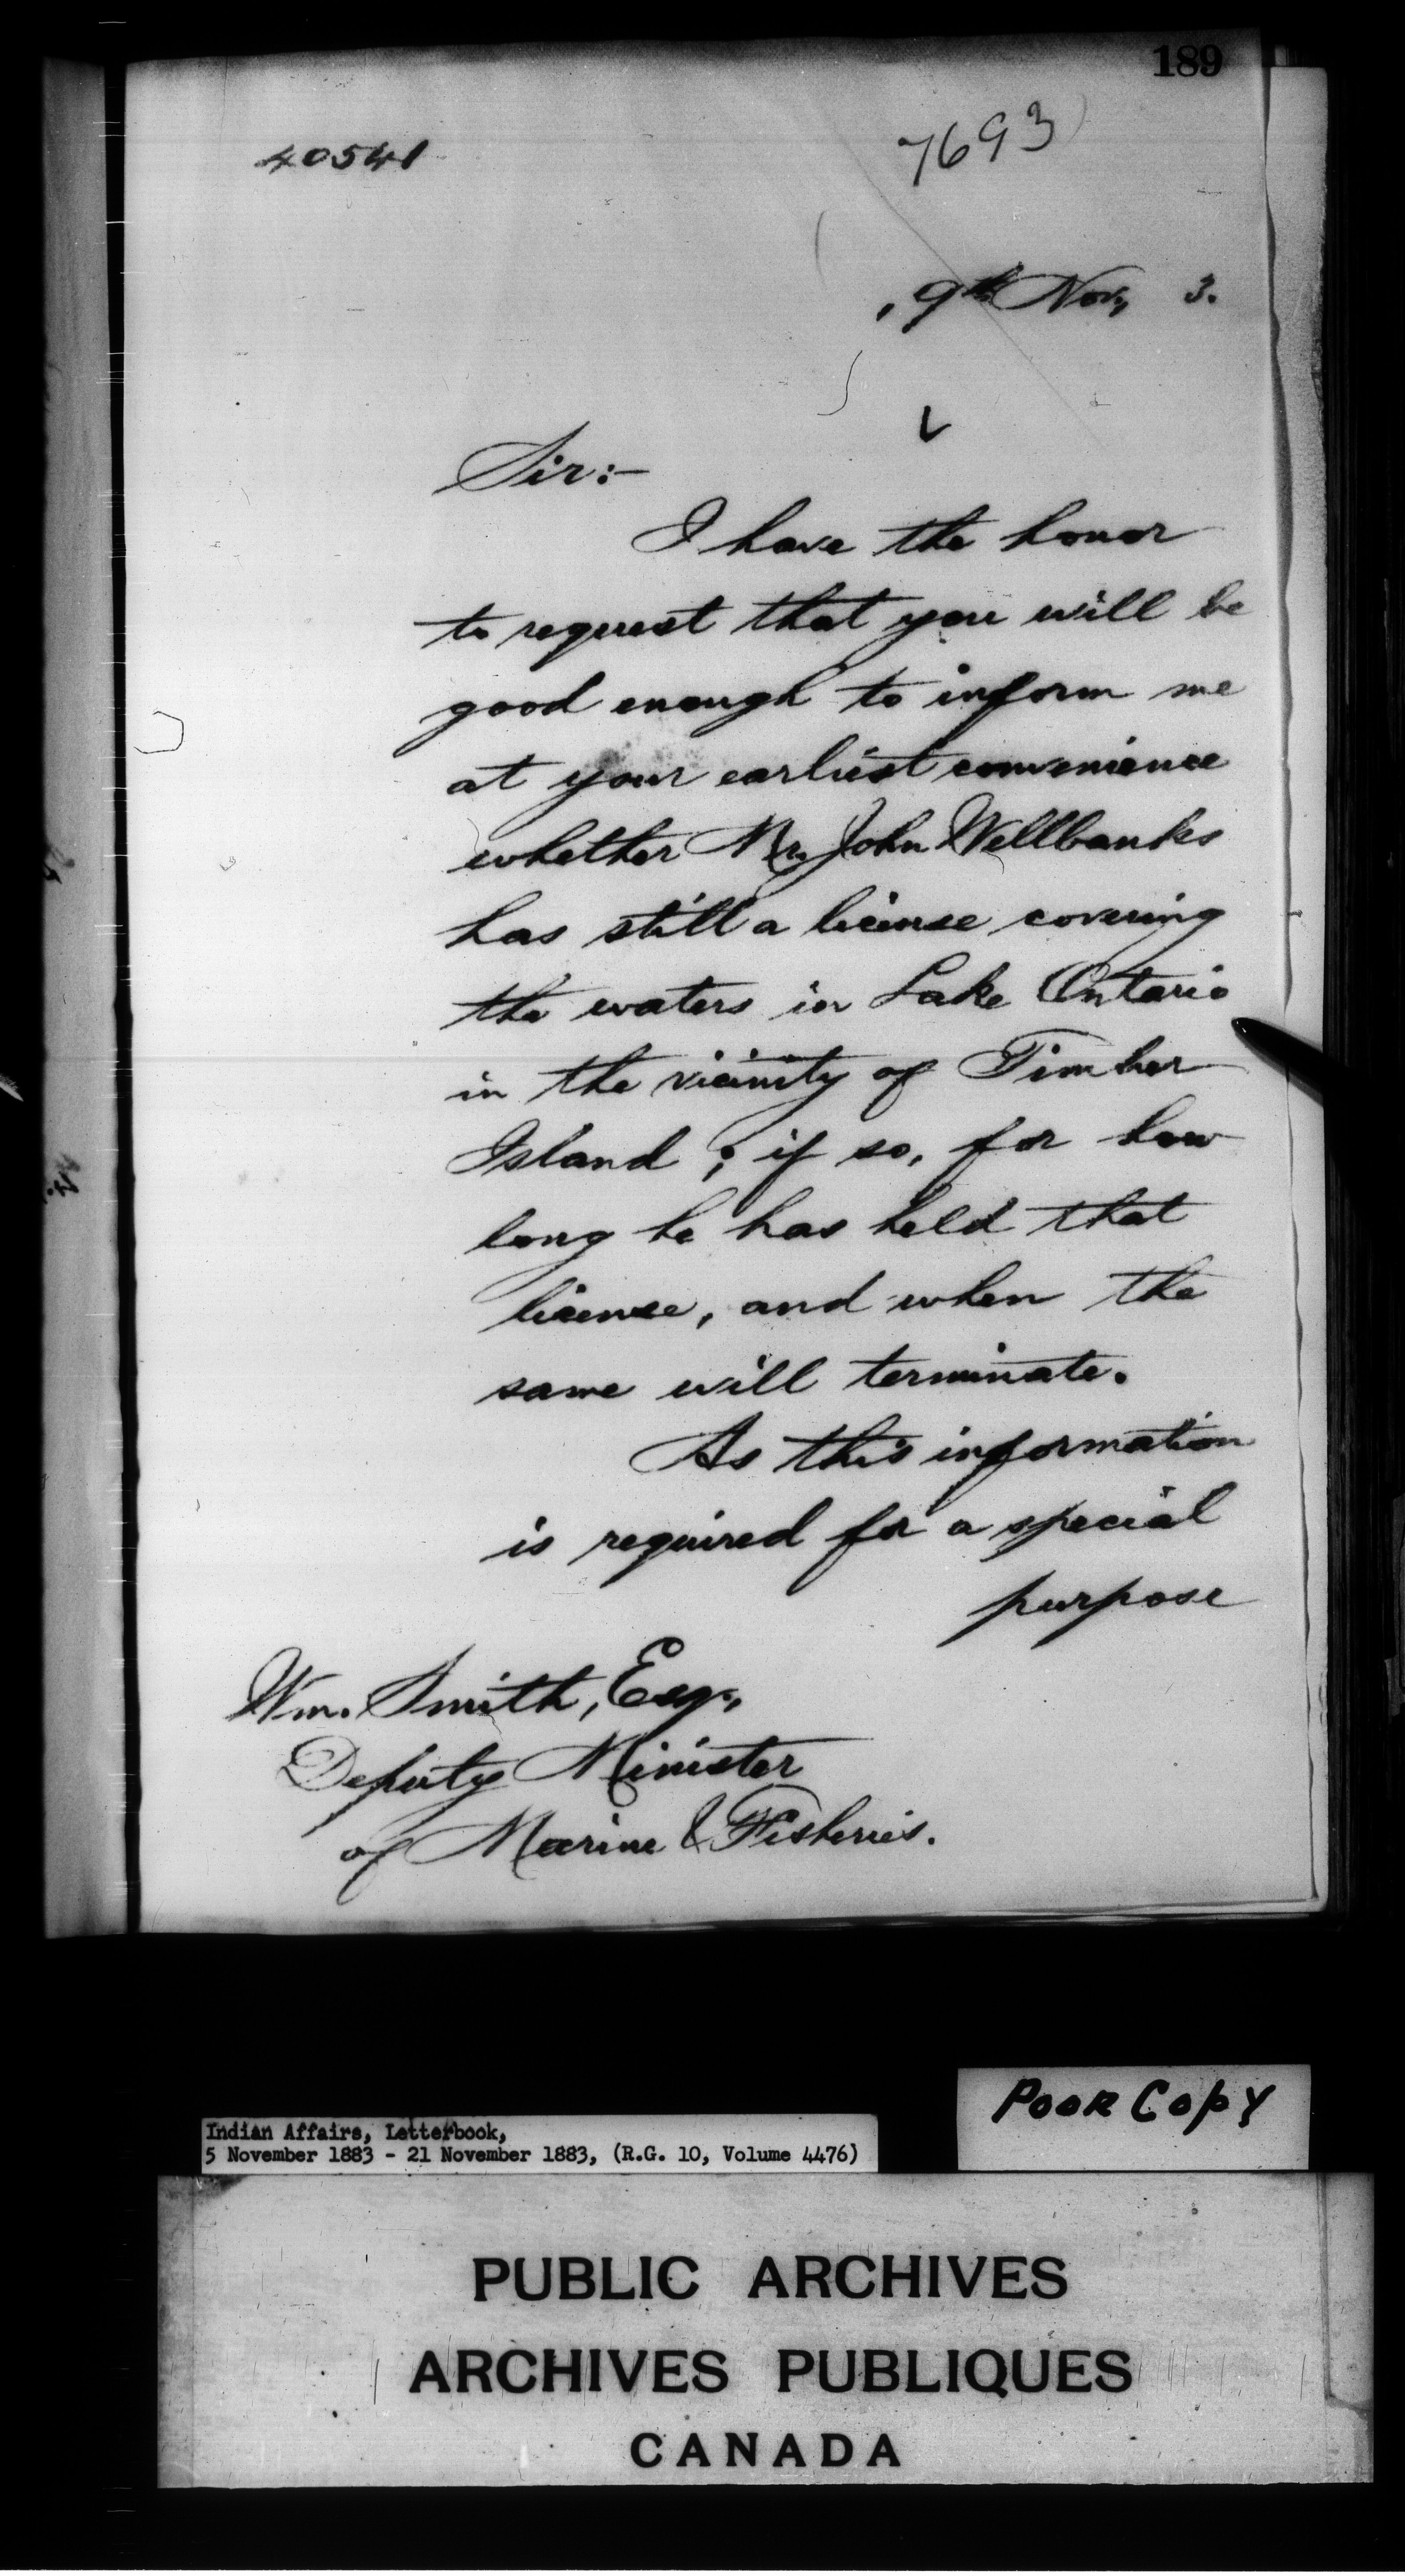 189
40541
7693
, 9th Nov, 3.
Sir:-
I have the honor
to request that you will be
good enough to inform me
at your earliest convenience
whether Mr. John Wellbanks
has still a license covering
the waters in Lake Ontario
in the vicinity of Timber
Island; if so, for how
long he has held that
license, and when the
same will terminate.
As this information
is required for a special
purpose
Wm. Smith, Esq.,
Deputy Minister
of Marine & Fisheries.
POOR COPY
Indian Affairs, Letterbook,
5 November 1883 - 21 November 1883, (R.G. 10, Volume 4476)
PUBLIC ARCHIVES
ARCHIVES PUBLIQUES
CANADA